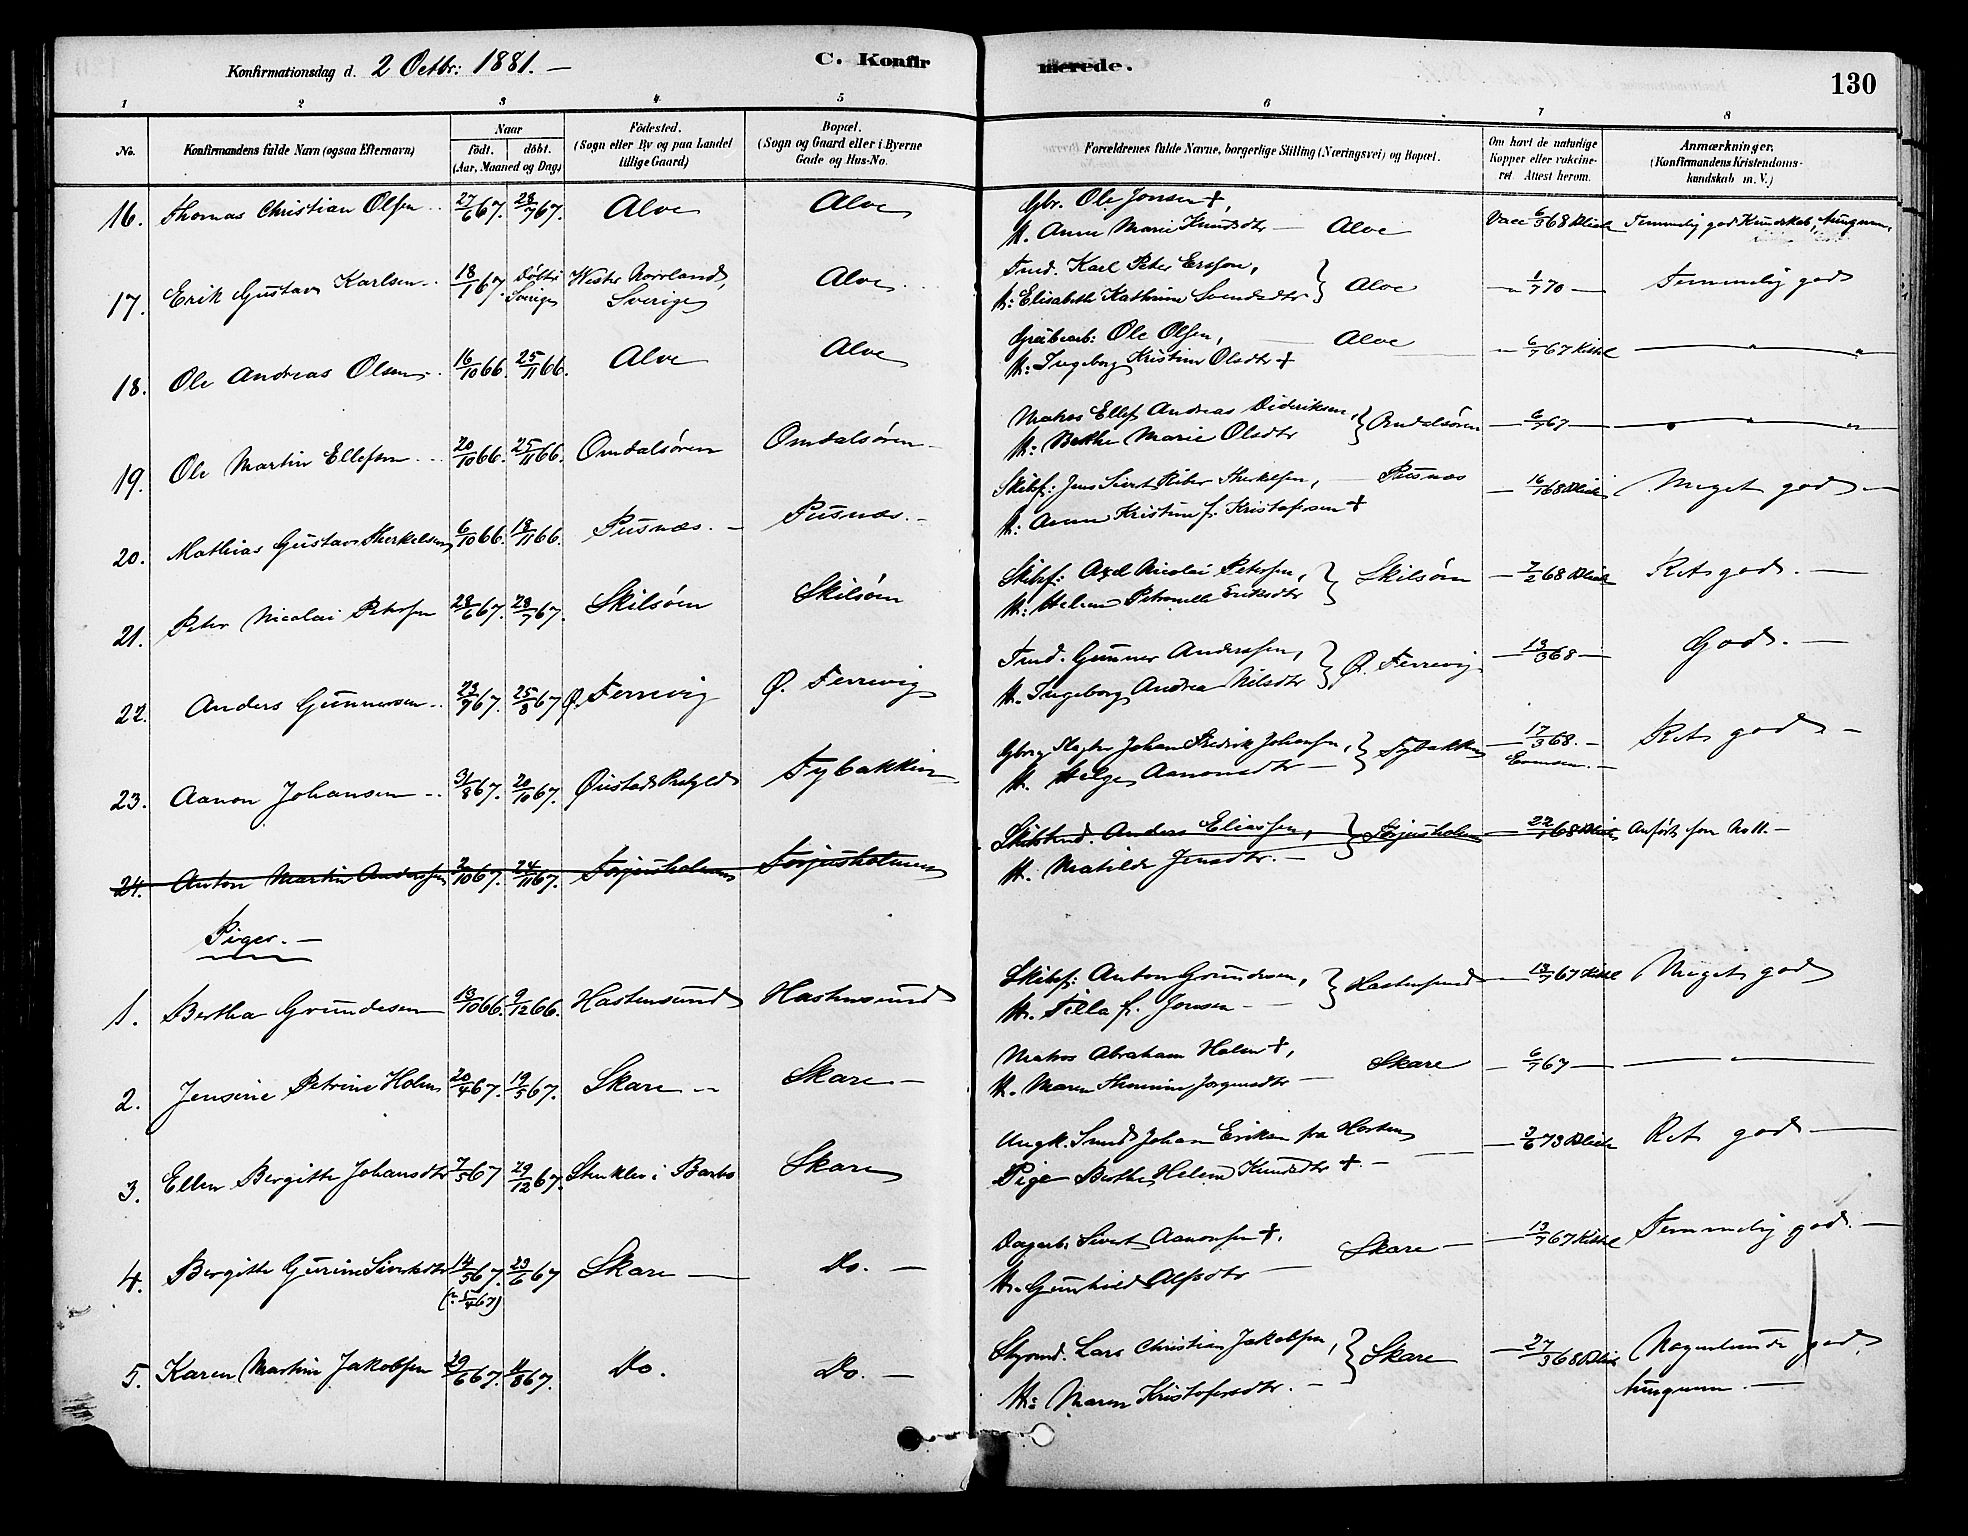 Konfirmationsdag d. 2 Octbr: 1881. — C. Konfirmerede. 130
1 2 3 4 5 6 7 8
No. Konfirmandens fulde Navn (ogsaa Efternavn) Naar födt. döbt. (Aar, Maaned og Dag) Födested. (Sogn eller By og paa Landet tillige Gaard) Bopæl. (Sogn og Gaard eller i Byerne Gade og Hus-No. Forældrenes fulde Navne, borgerlige Stilling (Næringsvei) og Bopæl. Om havt de naturlige Kopper eller vakcineret. Attest herom. Anmærkninger. (Konfirmandens Kristendomskundskab m. V.)
16. Thomas Christian Olsen 27/6 67. 28/7 67. Alve Alve Gbr. Ole Jonsen +, Alve Vacc 6/3 68 Temmelig god Kundskab,
H. Anne Marie Knudsdtr
17. Erik Gustav Karlsen 18/1 67. Døbt i Sverige Wester Norrland, Sverige Alve Tmd. Karl Peter Ersson, Alve 1/7 70 Temmelig god
H: Elisabeth Kathrine Svendsdtr
18. Ole Andreas Olsen 16/10 66. 25/11 66. Alve Alve Ole Olsen, Alve 6/7 67 " "
H: Ingeborg Kristine Olsdtr +
19. Ole Martin Ellefsen 20/10 66. 25/11 66. Omdalsøren Omdalsøren Matros Ellef Andreas Dideriksen, Omdalsøren 6/7 67 " "
H: Berthe Marie Olsdtr
20. Mathias Gustav Therkelsen 6/10 66. 18/11 66. Pusnæs. Pusnæs. Skibsf: Jens Sivert Riber Therkelsen, Pusnæs 16/1 68 Meget god
H: Anne Kristine f. Kristofersen +
21. Peter Nicolai Petersen 28/6 67. 28/7 67. Skilsøen Skilsøen Skibsf: Axel Nicolai Petersen, Skilsøen 7/2 68 Ret god.
H: Helene Petronelle Eriksdtr
22. Anders Gunnersen 23/7 67. 25/8 67 Ø. Terrevig Ø. Terrevig Tmd. Gunner Anderssen, Ø. Terrevig 13/3 68 God.
H. Ingeborg Andrea Nilsdtr
23. Aanon Johansen 31/8 67. 20/10 67. Øiestads Prstgld Tybakken Johan Fredrik Johansen, Tybakken 17/3 68. Ret god
H. Helge Aanonsdtr
24. Anton Martin Anderssen 2/10 67. 24/11 67. Torjusholmen Torjusholmen Skibstmd. Anders Eliassen, Torjusholm 22/1 68 Anført som No 11.
H. Matilde Jensdtr.
Piger.
1. Bertha Grundesen 13/10 66. 9/12 66. Hastensund Hastensund Skibsf: Anton Grundesen, Hastensund 13/7 67 Meget god
H. Tilla f. Jonsen
2. Jensine Petrine Holm 20/4 67. 19/5 67. Skare Skare Matros Abraham Holm +, Skare 6/7 67 "
H. Maren Thomine Jørgensdtr
3. Ellen Bergitte Johansdtr 7/5 67 29/12 67. Stenklev i Barbo Skare Ungk. Johan Eriksen fra Hasten 3/6 73 Ret god
Pige Berthe Helene Knudsdtr +
4. Bergitte Gurine Sivertsdtr 14/5 67. 23/6 67 Skare Do. Dagarb. Sivert Aanonsen +, Skare 13/7 67 Temmelig god.
H. Gunhild Olsdtr
5. Karen Martine Jakobsen 29/6 67. 4/8 67. Do. Do. Styrmd. Lars Christian Jakobsen, Skare 27/3 68 Nogenlunde god.
H: Maren Kristofersdtr.